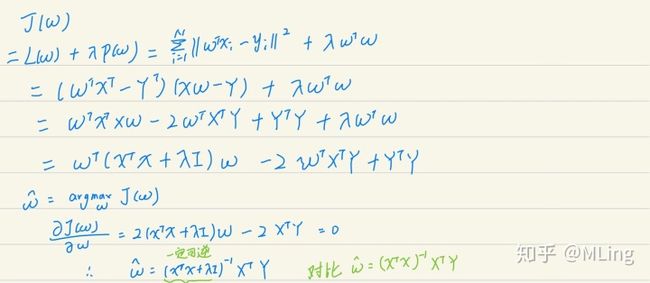 J(ω)
= L(ω) + λP(ω) = Σ_{i=1}^{N} ||ω^T x_i - y_i||² + λω^Tω
= (ω^T X^T - Y^T)(Xω - Y) + λω^Tω
= ω^T X^T Xω - 2ω^T X^T Y + Y^T Y + λω^Tω
= ω^T (X^T X + λI) ω - 2ω^T X^T Y + Y^T Y
ω̂ = argmax_ω J(ω)
∂J(ω)/∂ω = 2(X^T X + λI)ω - 2X^T Y = 0
一定可逆
∴ ω̂ = (X^T X + λI)^{-1} X^T Y 对比 ω̂ = (X^T X)^{-1} X^T Y
知乎 @MLing